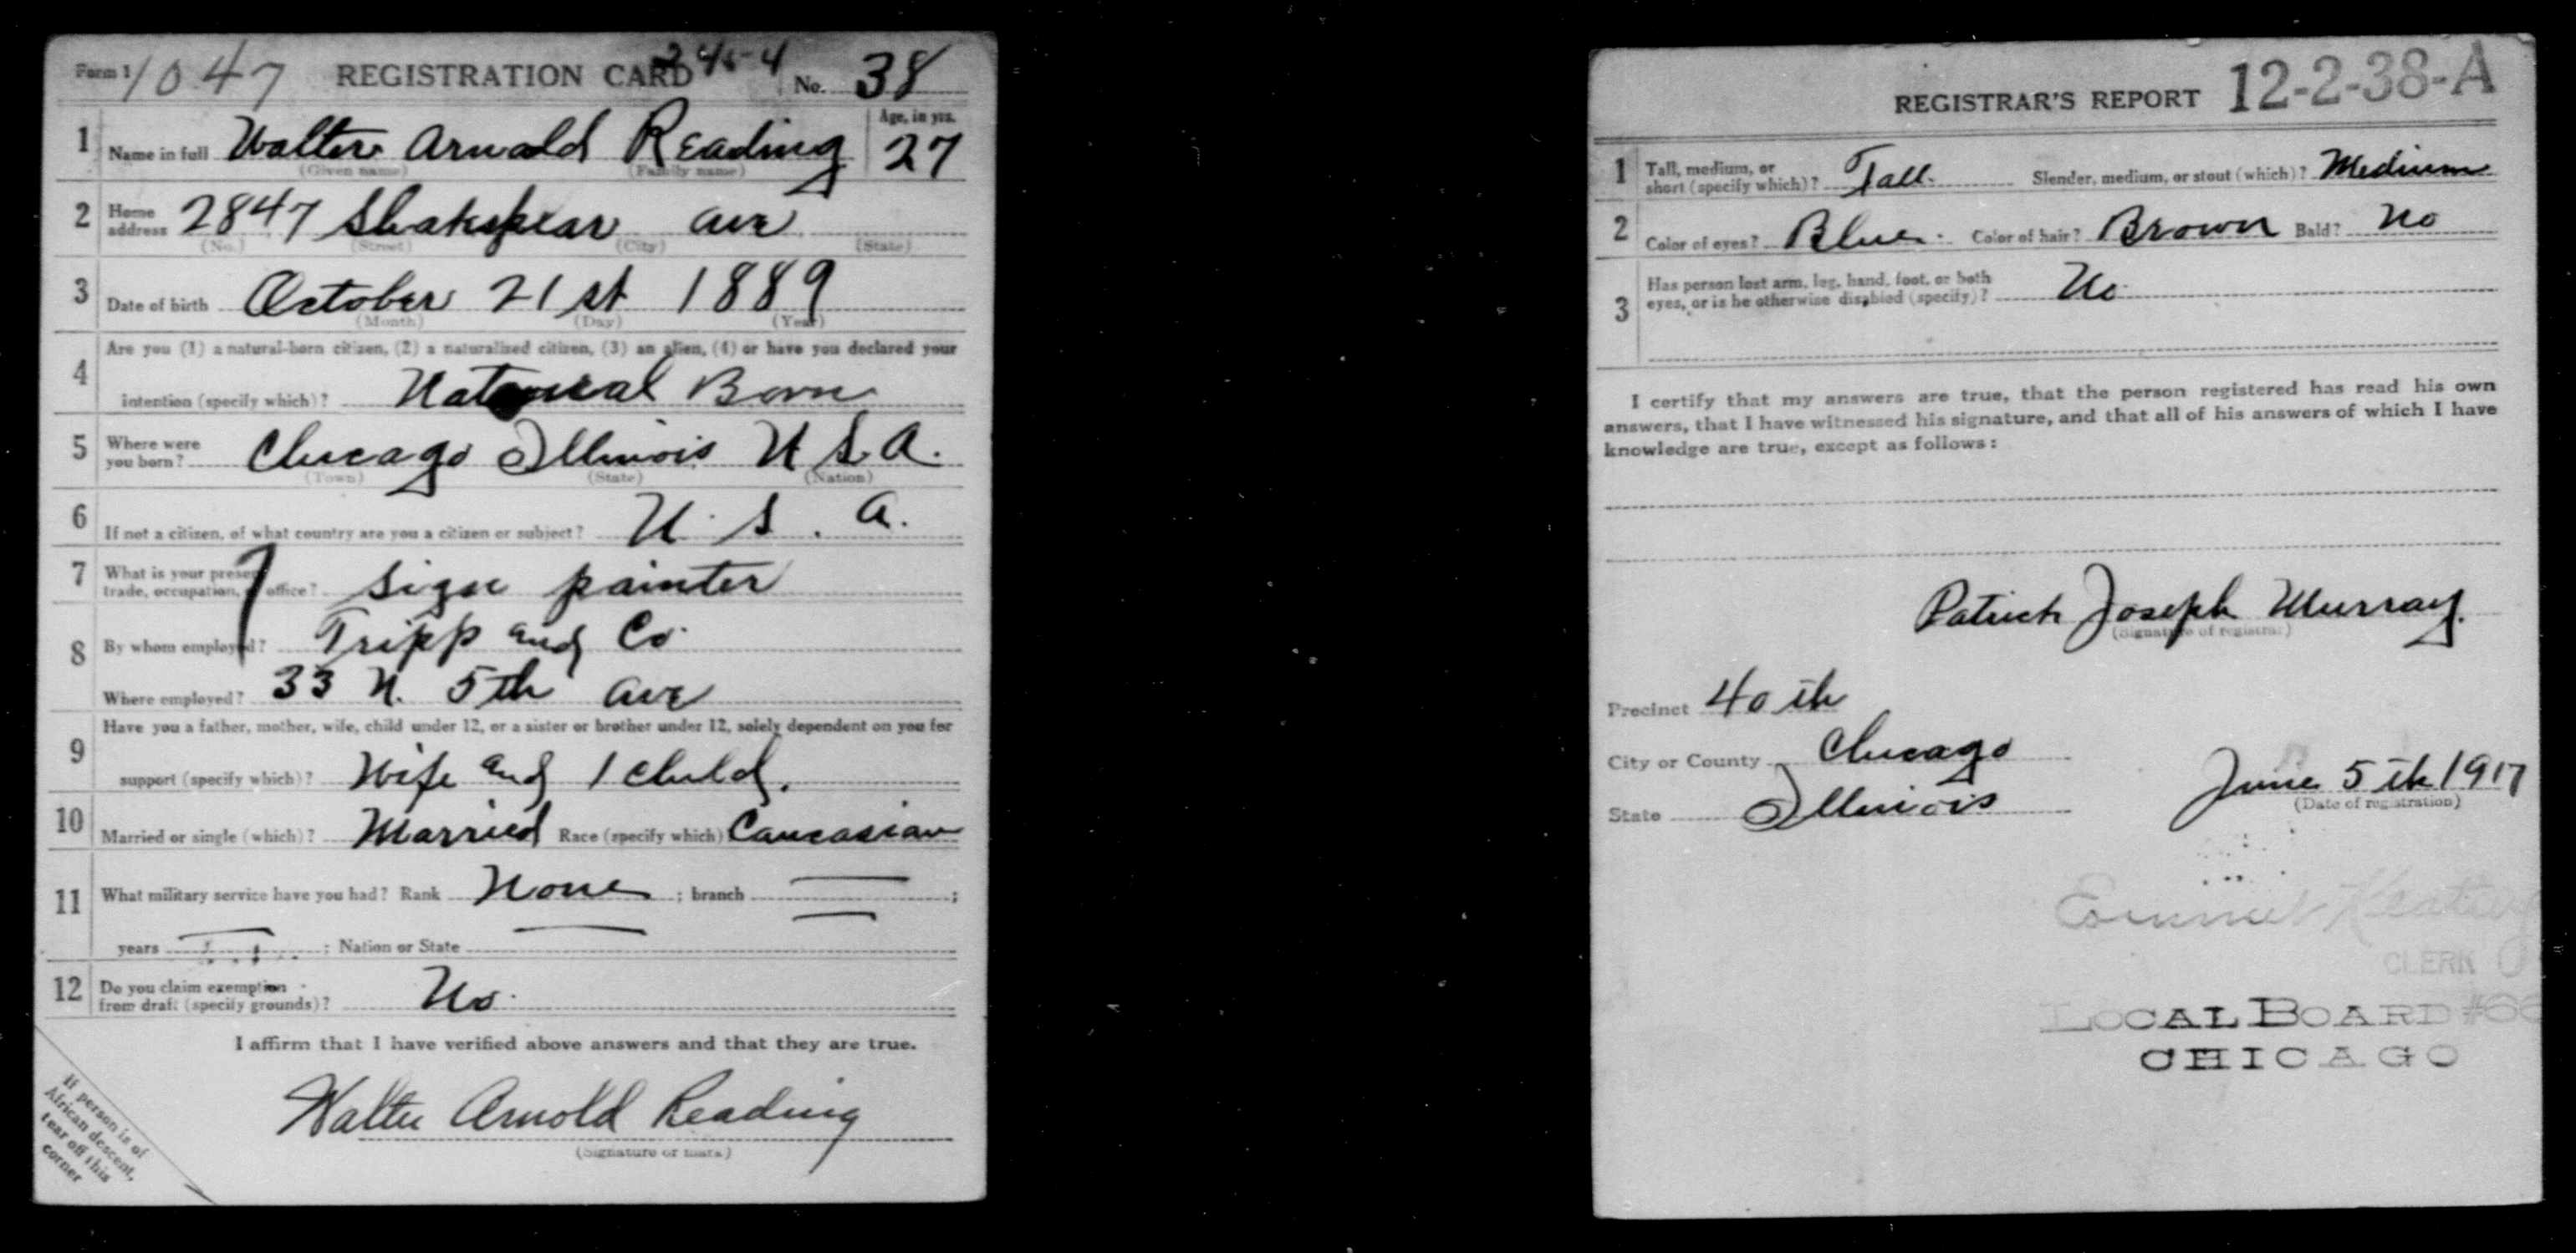 Form 1 1047 REGISTRATION CARD No. 38
1 Name in full Walter Arnold Reading Age, in yrs. 27
(Given name) (Family name)
2 Home address 2847 Shakspear ave
(No.) (Street) (City) (State)
3 Date of birth October 21st 1889
(Month) (Day) (Year)
4 Are you (1) a natural-born citizen, (2) a naturalized citizen, (3) an alien, (4) or have you declared your
intention (specify which)? Natural Born
5 Where were you born? Chicago Illinois U.S.A.
(Town) (State) (Nation)
6 If not a citizen, of what country are you a citizen or subject? U.S.A.
7 What is your present trade, occupation, or office? Sign painter
8 By whom employed? Tripp and Co.
Where employed? 33 N. 5th ave
9 Have you a father, mother, wife, child under 12, or a sister or brother under 12, solely dependent on you for
support (specify which)? Wife and 1 child.
10 Married or single (which)? Married Race (specify which) Caucasian
11 What military service have you had? Rank None ; branch — ;
years — ; Nation or State —
12 Do you claim exemption
from draft (specify grounds)? No.
I affirm that I have verified above answers and that they are true.
Walter Arnold Reading
(Signature or mark)
If person is of
African descent,
tear off this
corner
REGISTRAR'S REPORT 12-2-38-A
1 Tall, medium, or
short (specify which)? Tall. Slender, medium, or stout (which)? Medium
2 Color of eyes? Blue. Color of hair? Brown Bald? No
3 Has person lost arm, leg, hand, foot, or both
eyes, or is he otherwise disabled (specify)? No.
I certify that my answers are true, that the person registered has read his own
answers, that I have witnessed his signature, and that all of his answers of which I have
knowledge are true, except as follows:
Patrick Joseph Murray.
(Signature of registrar)
Precinct 40th
City or County Chicago
State Illinois
June 5th 1917
(Date of registration)
CLERK
LOCAL BOARD #66
CHICAGO